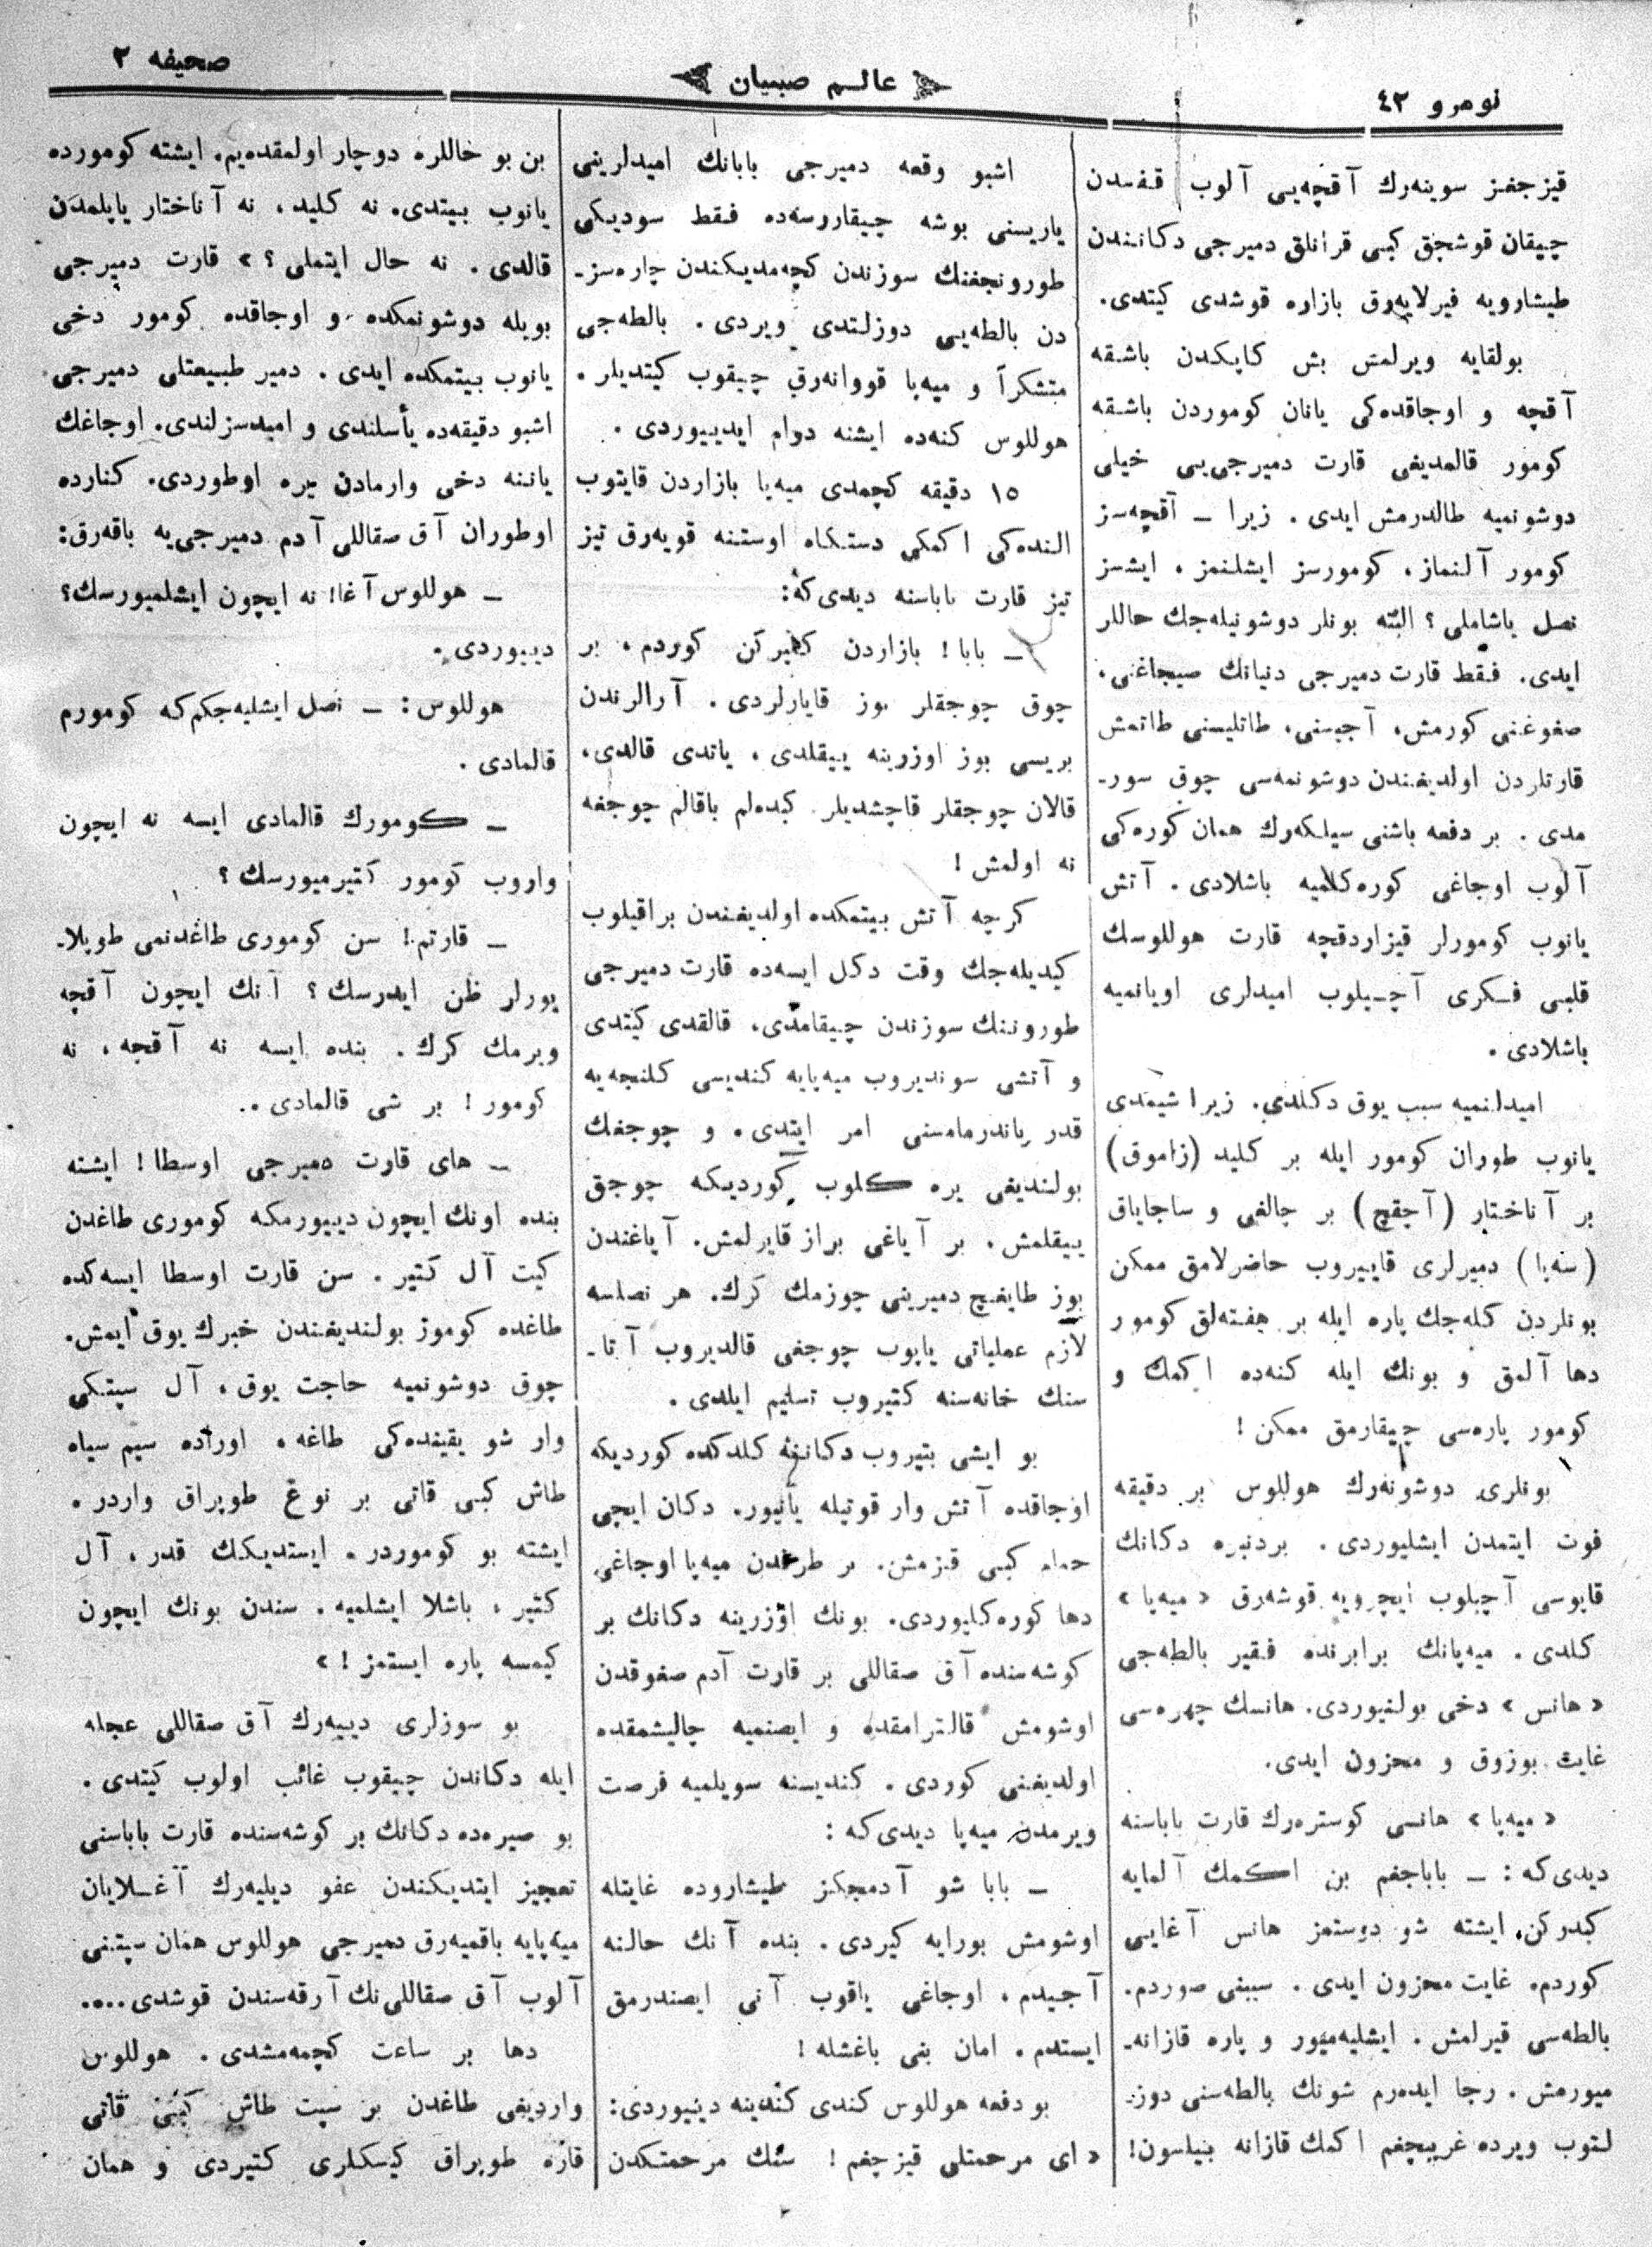 نومرو ٤٢
عالم صبیان
صحیفه ٣
قیزجغز سوینه‌رك آقچه‌یی آلوب قفسدن
چیقان قوشجق كبی قرانلق دمیرجی دكانندن
طیشارویه فیرلایه‌رق بازاره قوشدی كیتدی.
بولقایه ویرلمش بش كاپكدن باشقه
آقچه و اوجاقده‌كی یانان كوموردن باشقه
كومور قالمدیغی قارت دمیرجی‌یی خیلی
دوشونمیه طالدرمش ایدی. زیرا ـ آقچه‌سز
كومور آلنماز، كومورسز ایشلنمز، ایشسز
نصل یاشاملی؟ البته بونلر دوشونیله‌جك حاللر
ایدی. فقط قارت دمیرجی دنیانك صیجاغنی،
صغوغنی كورمش، آجیسنی، طاتلیسنی طاتمش
قارتلردن اولدیغندن دوشونمه‌سی چوق سور-
مدی. بر دفعه باشنی سیلكه‌رك همان كوره‌كی
آلوب اوجاغی كوره‌كلمیه باشلادی. آتش
یانوب كومورلر قیزاردقچه قارت هوللوسك
قلبی فكری آچیلوب امیدلری اویانمیه
باشلادی.
امیدلنمیه سبب یوق دكلدی. زیرا شیمدی
یانوب طوران كومور ایله بر كلید (زاموق)
بر آناختار (آچقچ) بر چالغی و ساجایاق
(سه‌پا) دمیرلری قاییروب حاضرلامق ممكن
بونلردن كله‌جك پاره ایله بر هفته‌لق كومور
دها آلمق و بونك ایله كنه‌ده اكمك و
كومور پاره‌سی چیقارمق ممكن!
بونلری دوشونه‌رك هوللوس بر دقیقه
فوت ایتمدن ایشلیوردی. بردنبره دكانك
قاپوسی آچیلوب ایچرویه قوشه‌رق «میه‌پا»
كلدی. میه‌پانك برابرنده فقیر بالطه‌جی
«هانس» دخی بولنیوردی. هانسك چهره‌سی
غایت بوزوق و محزون ایدی.
«میه‌پا» هانسی كوستره‌رك قارت باباسنه
دیدی‌كه: ـ باباجغم بن اكمك آلمایه
كیدركن، ایشته شو دوستمز هانس آغایی
كوردم. غایت محزون ایدی. سببنی صوردم.
بالطه‌سی قیرلمش. ایشلیه‌میور و پاره قازانه-
میورمش. رجا ایده‌رم شونك بالطه‌سنی دوز-
لتوب ویرده غریبچغم اكمك قازانه بیلسون!
اشبو وقعه دمیرجی بابانك امیدلرینی
یاریسنی بوشه چیقاررسه‌ده فقط سودیكی
طورونجغنك سوزندن كچه‌مدیكندن چاره‌سز-
دن بالطه‌یی دوزلتدی ویردی. بالطه‌جی
متشكراً و میه‌پا قووانه‌رق چیقوب كیتدیلر.
هوللوس كنه‌ده ایشنه دوام ایدییوردی.
١٥ دقیقه كچمدی میه‌پا بازاردن قایتوب
النده‌كی اكمكی دستكاه اوستنه قویه‌رق تیز
تیز قارت باباسنه دیدی‌كه:
ـ بابا! بازاردن كلیركن كوردم، بر
چوق چوجقلر بوز قایارلردی. آرالرندن
بریسی بوز اوزرینه ییقلدی، یاتدی قالدی،
قالان چوجقلر قاچشدیلر. كیده‌لم باقالم چوجغه
نه اولمش!
كرچه آتش بیتمكده اولدیغندن براقیلوب
كیدیله‌جك وقت دكل ایسه‌ده قارت دمیرجی
طوروننك سوزندن چیقامدی، قالقدی كیتدی
و آتشی سوندیروب میه‌پایه كندیسی كلنجه‌یه
قدر یاندرمامسنی امر ایتدی. و چوجغك
بولندیغی یره كلوب كوردیكه چوجق
ییقلمش. بر آیاغی براز قایرلمش. آیاغندن
بوز طایغیچ دمیرینی چوزمك كرك. هر نصلسه
لازم عملیاتی یاپوب چوجغی قالدیروب آتا-
سنك خانه‌سنه كتیروب تسلیم ایلدی.
بو ایشی بتیروب دكاننه كلدكده كوردیكه
اوجاقده آتش وار قوتیله یانیور. دكان ایچی
حمام كبی قیزمش. بر طرفدن میه‌پا اوجاغی
دها كوره‌كلیوردی. بونك اوزرینه دكانك بر
كوشه‌سنده آق صقاللی بر قارت آدم صغوقدن
اوشومش قالترامقده و ایصنمیه چالیشمقده
اولدیغنی كوردی. كندیسنه سویلمیه فرصت
ویرمدن میه‌پا دیدی‌كه:
ـ بابا شو آدمجكز طیشاروده غایتله
اوشومش بورایه كیردی. بنده آنك حالنه
آجیدم، اوجاغی یاقوب آنی ایصندرمق
ایستدم. امان بنی باغشله!
بو دفعه هوللوس كندی كندینه دییوردی:
«ای مرحمتلی قیزجغم! سنك مرحمتكدن
بن بو حاللره دوچار اولمقده‌یم. ایشته كومورده
یانوب بیتدی. نه كلید، نه آناختار یاپلمدن
قالدی. نه حال ایتملی؟» قارت دمیرجی
بویله دوشونمكده و اوجاقده كومور دخی
یانوب بیتمكده ایدی. دمیر طبیعتلی دمیرجی
اشبو دقیقه‌ده یأسلندی و امیدسزلندی. اوجاغك
یاننه دخی وارمادن یره اوطوردی. كنارده
اوطوران آق صقاللی آدم دمیرجی‌یه باقه‌رق:
ـ هوللوس آغا! نه ایچون ایشلمیورسك؟
دییوردی.
هوللوس: ـ نصل ایشلیه‌جكم‌كه كومورم
قالمادی.
ـ كومورك قالمادی ایسه نه ایچون
واروب كومور كتیرمیورسك؟
ـ قارتم! سن كوموری طاغدنمی طوپلا-
یورلر ظن ایدرسك؟ آنك ایچون آقچه
ویرمك كرك. بنده ایسه نه آقچه، نه
كومور! بر شی قالمادی.
ـ های قارت دمیرجی اوسطا! ایشته
بنده اونك ایچون دییورمكه كوموری طاغدن
كیت آل كتیر. سن قارت اوسطا ایسه‌كده
طاغده كومور بولندیغندن خبرك یوق ایمش.
چوق دوشونمیه حاجت یوق، آل سپتكی
وار شو یقینده‌كی طاغه، اوراده سیم سیاه
طاش كبی قاتی بر نوع طوپراق واردر.
ایشته بو كوموردر. ایستدیكك قدر، آل
كتیر، باشلا ایشلمیه. سندن بونك ایچون
كیمسه پاره ایستمز!»
بو سوزلری دییه‌رك آق صقاللی عجله
ایله دكاندن چیقوب غائب اولوب كیتدی.
بو صیره‌ده دكانك بر كوشه‌سنده قارت باباسنی
تعجیز ایتدیكندن عفو دیلیه‌رك آغلایان
میه‌پایه باقمیه‌رق دمیرجی هوللوس همان سپتنی
آلوب آق صقاللی‌نك آرقه‌سندن قوشدی....
دها بر ساعت كچمه‌مشدی. هوللوس
واردیغی طاغدن بر سپت طاش كبی قاتی
قاره طوپراق كیسكلری كتیردی و همان